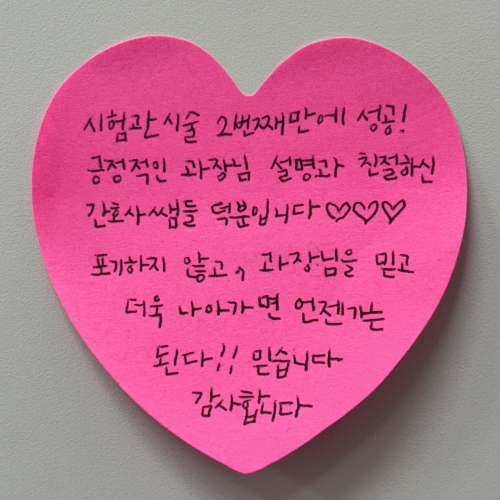 시험관 시술 2번째만에 성공!
긍정적인 과장님 설명과 친절하신
간호사쌤들 덕분입니다♡♡♡
포기하지 않고, 과장님을 믿고
더욱 나아가면 언젠가는
된다!! 믿습니다
감사합니다